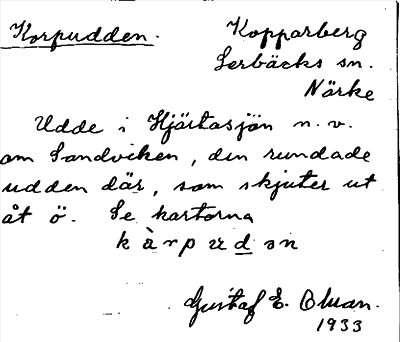 Korpudden. Kopparberg
Lerbäcks sn.
Närke
Udde i Hjärtasjön n.v.
om Sandviken, den rundade
udden där, som skjuter ut
åt ö. Se kartorna
k à r p u d ə n
Gustaf E. Oluan.
1933